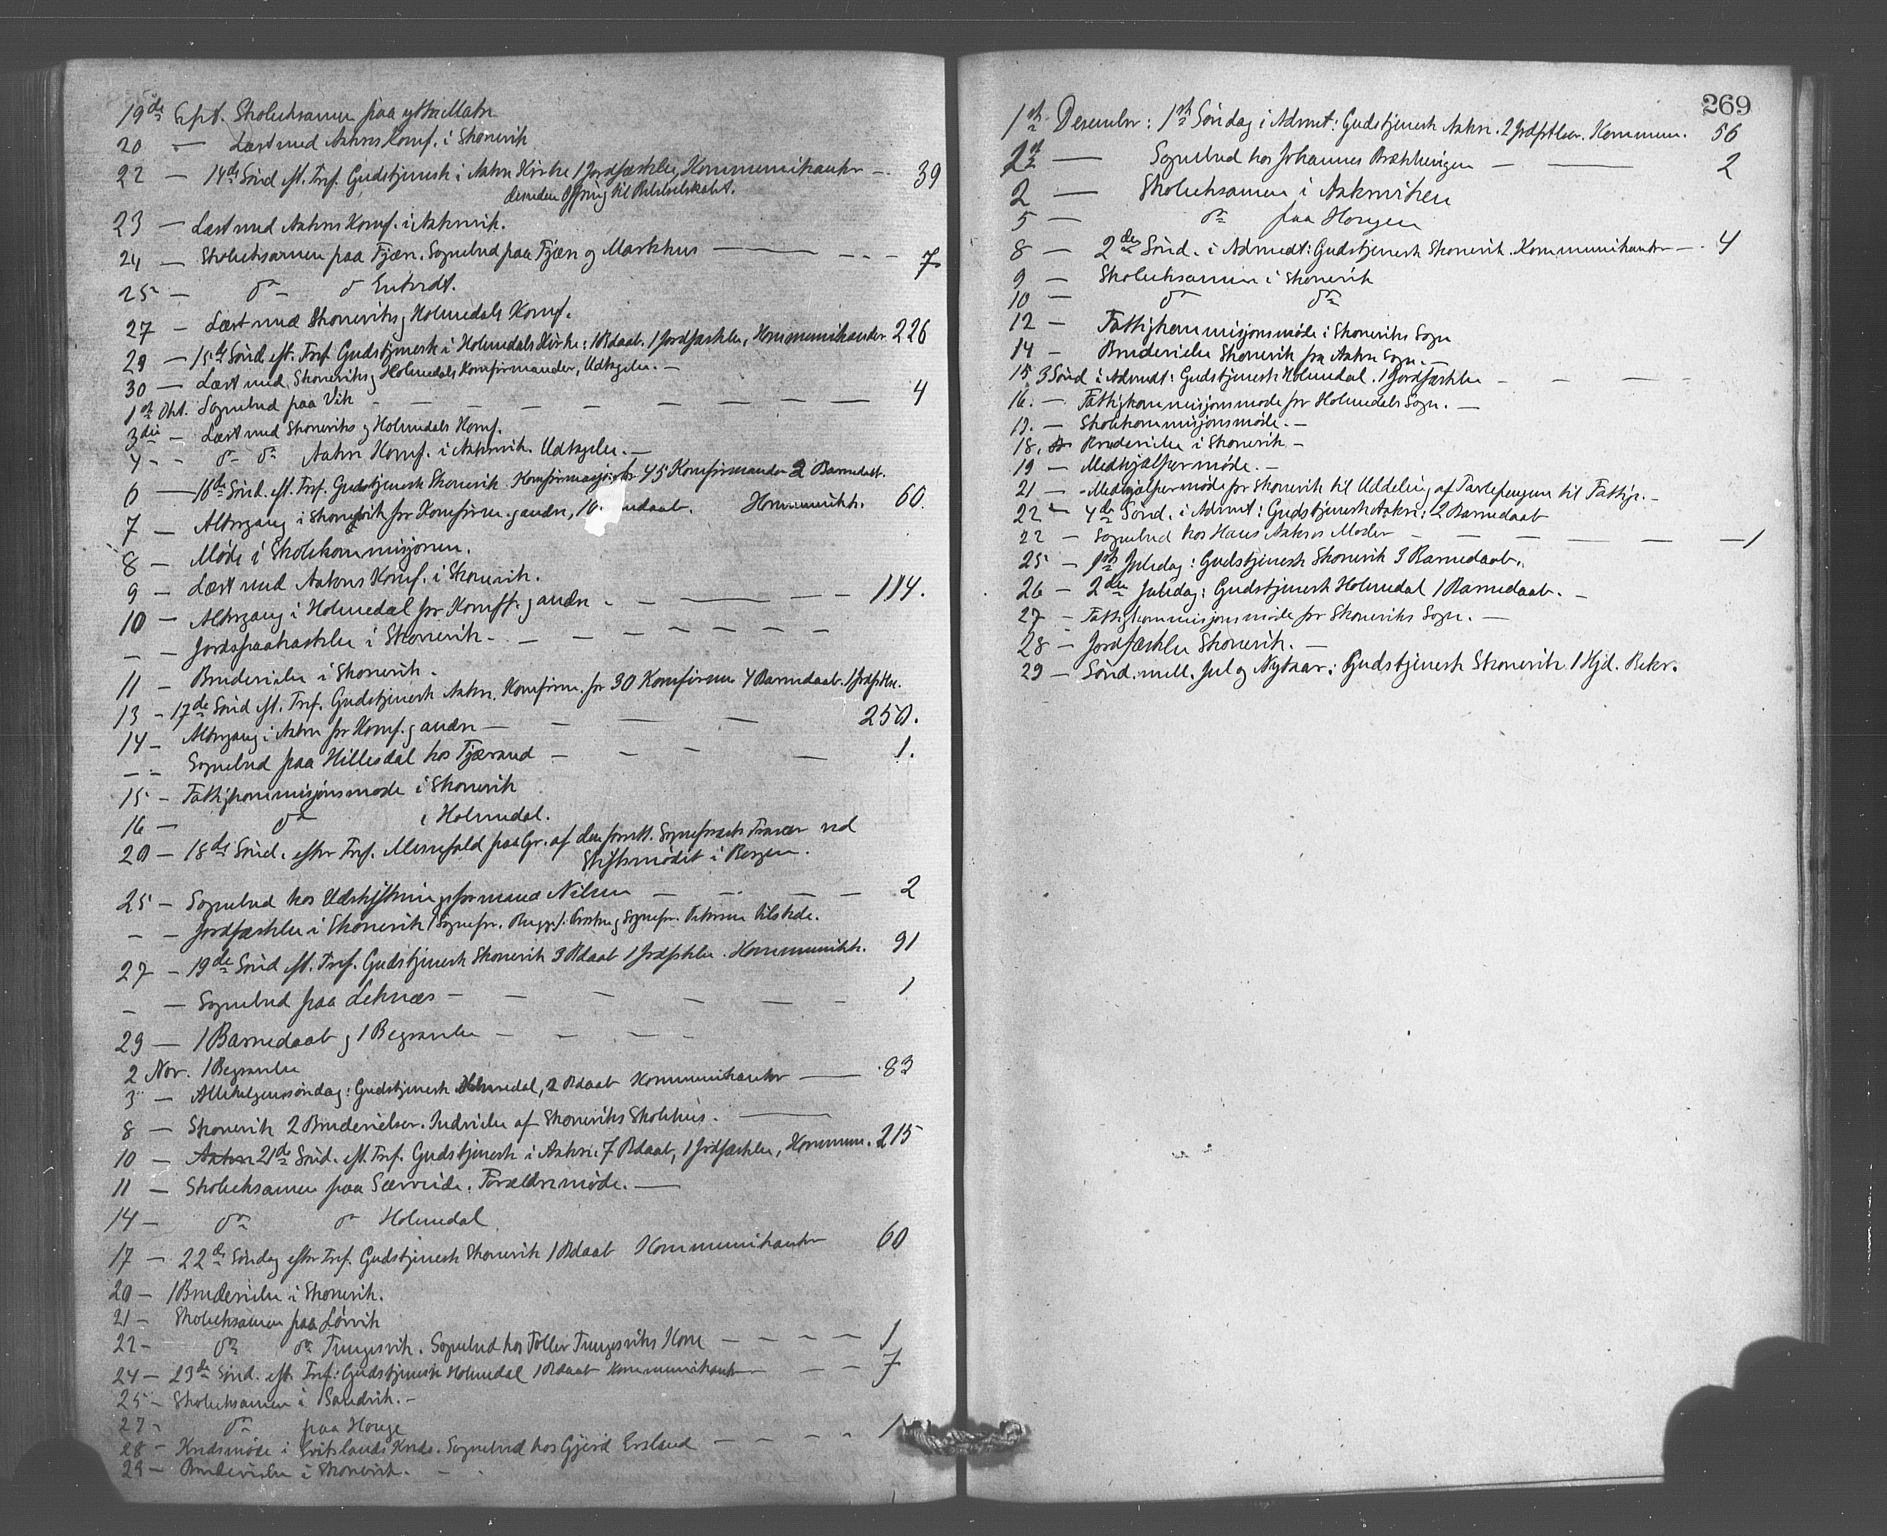 19de Sept. Skoleeksamen paa ytre Matre
20 — Læst med Aakres Konf. i Skonevik
22 — 14de Sønd. eft. Tref. Gudstjeneste i Aakre Kirke 1 Jordfæstelse, Kommunikanter — 39
desuden Offring til Bibelselskabet.
23 — Læst med Aakres Konf. i Aakrevik.
24 — Skoleeksamen paa Fjæra. Sognebud paa Fjæra og Markhus — 7
25 — do do
27 — Læst med Skoneviks og Holmedals Konf.
29 — 15de Sønd. eft. Tref. Gudstjeneste i Holmedals Kirke: 1 Bdaab. 1 Jordfæstelse, Kommunikanter 226
30 — Læst med Skoneviks og Holmedals Konfirmander, Udtagelse. —
1ste Okt. Sognebud paa Vik — 4
3die — Læst med Skoneviks og Holmedals Konf.
4 — do do Aakre Konf. i Aakrevik. Udtagelse. —
6 — 16de Sønd. eft. Tref. Gudstjeneste Skonevik. Konfirmasjon for 45 Konfirmander 2 Barnedaab.
7 — Altergang i Skonevik for Konfirm. og andre, Kommunikk. 60.
8 — Møde i Skolekommisjonen.
9 — Læst med Aakres Konf. i Skonevik.
10 — Altergang i Holmedal for Konff. og andre — 114.
— — Jordspaakastelse i Skonevik —
11 — Brudevielse i Skonevik.
13 — 17de Sønd. eft. Tref. Gudstjeneste Aakre. Konfirm. for 30 Konfirm. 4 Barnedaab. 1 Jordfstlse.
14 — Altergang i Aakre for Konf. og andre — 250.
— — Sognebud paa Hillesdal hos Tjærand — 1.
15 — Fattigkommisjonsmøde i Skonevik
16 — do i Holmedal.
20 — 18de Sønd. efter Tref. Messefald paa Gr. af den forrett. Sogneprests Fravær ved
Stiftsmødet i Bergen.
25 — Sognebud hos Udskiftningsformand Nilsen — 2
— — Jordfæstelse i Skonevik (Sognepr. Bugge). Prost og Sognepr. tilstede.
27 — 19de Sønd. eft. Tref. Gudstjeneste Skonevik 3 Bdaab 1 Jordfstelse. Kommunikk. 91
— — Sognebud paa Leknæs — 1
29 — 1 Barnedaab og 1 Begravelse —
2 Nov. 1 Begravelse
3 — Allehelgenssøndag: Gudstjeneste Holmedal, 2 Bdaab Kommunikanter — 83
8 — Skonevik 2 Brudevielser. Indvielse af Skoneviks Skolehus. —
10 — Aakre 21de Sønd. eft. Tref. Gudstjeneste i Aakre: 7 Bdaab, 1 Jordfæstelse, Kommun. 215
11 — Skoleeksamen paa Særvide. Forældremøde. —
14 — do do Holmedal
17 — 22de Søndag efter Tref. Gudstjeneste Skonevik 1 Bdaab Kommunikanter 60
20 — 1 Brudevielse i Skonevik.
21 — Skoleeksamen paa Løvik
22 — do do Tungesvik. Sognebud hos Tollev Tungesviks Kone — 1
24 — 23de Sønd. eft. Tref: Gudstjeneste Holmedal 1 Bdaab Kommunikanter — 7
25 — Skoleeksamen i Sandvik. —
27 — do paa Houge
28 — Kredsmøde i Kreds. Sognebud hos Gjerd Ersland — 1
29 — Brudevielse i Skonevik. —
269
1ste December: 1ste Søndag i Advent: Gudstjeneste Aakre. 2 Jordfstelser. Kommun. 56
2de — Sognebud hos Johannes Brekkevigen — 2
2 — Skoleeksamen i Aakreviken
5 — do paa Hougen
8 — 2den Sønd. i Advendt: Gudstjeneste Skonevik. Kommunikanter — 4
9 — Skoleeksamen i Skonevik
10 — do do
12 — Fattigkommisjonsmøde i Skoneviks Sogn
14 — Brudevielse Skonevik fra Aakre Sogn. —
15 3 Sønd i Advendt: Gudstjeneste Holmedal. 1 Jordfæstelse —
16. — Fattigkommisjonsmøde for Holmedals Sogn. —
17. — Skolekommisjonsmøde. —
18. Brudevielse i Skonevik —
19 — Medhjælpermøde. —
21 — Medhjælpermøde for Skonevik til Uddeling af Tavlepengene til Fattige. —
22 — 4de Sønd. i Advent: Gudstjeneste Aakre: 2 Barnedaab
22 — Sognebud hos Hans Aakres Moder — 1
25 — 1ste Juledag: Gudstjeneste Skonevik 3 Barnedaab.
26 — 2den Juledag: Gudstjeneste Holmedal 1 Barnedaab. —
27 — Fattigkommisjonsmøde for Skoneviks Sogn. —
28 — Jordfæstelse Skonevik. —
29 — Sønd. mell. Jul og Nytaar: Gudstjeneste Skonevik 1 Hjd. Bekr.